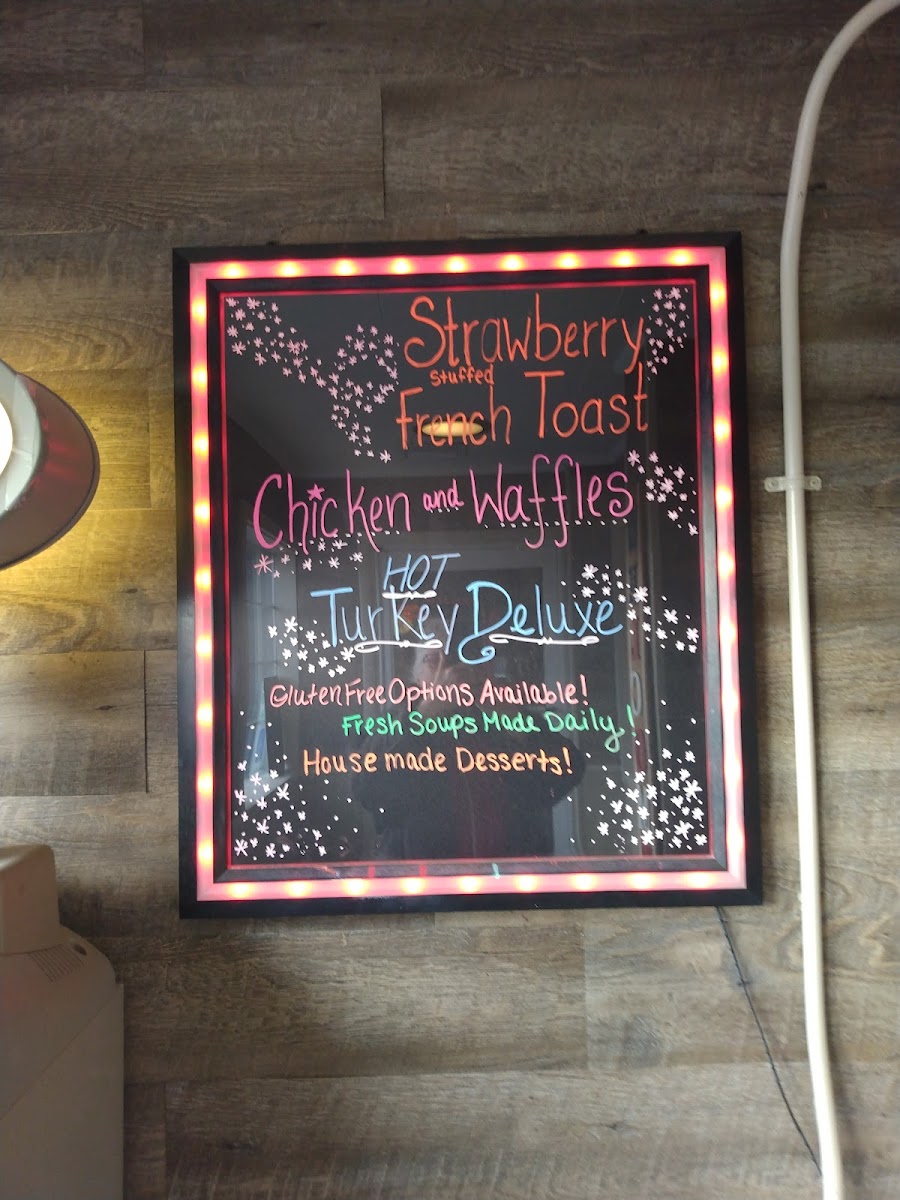 Strawberry
Stuffed
French Toast
Chicken and Waffles
HOT
Turkey Deluxe
Gluten Free Options Available!
Fresh Soups Made Daily!
House made Desserts!